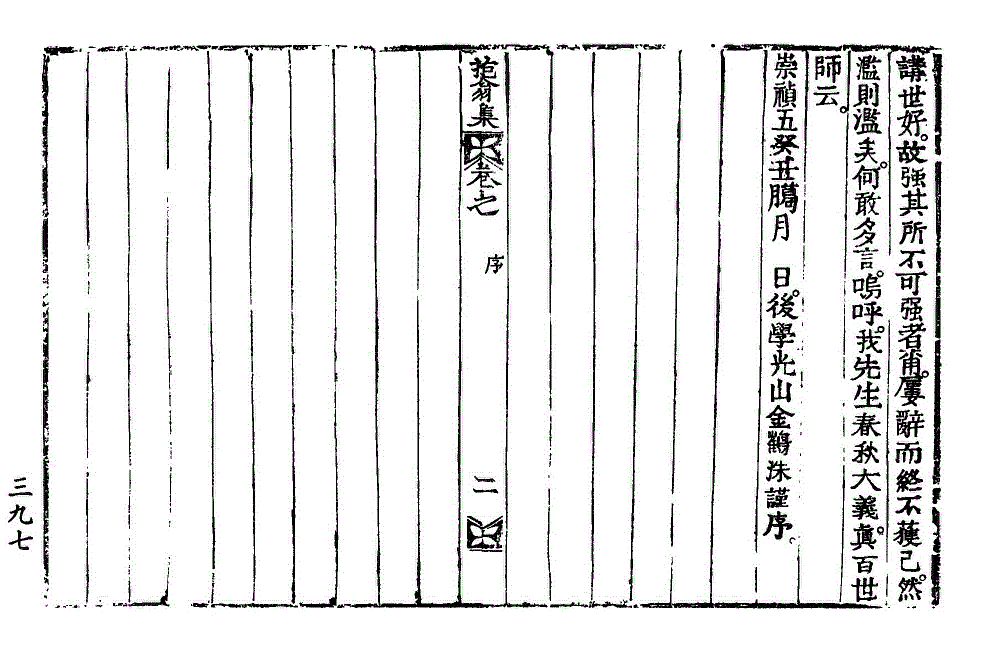 講世好。故强其所不可强者甭。屢辭而終不獲已。然
濫則濫矣。何敢多言。嗚呼。我先生春秋大義。眞百世
師云。
崇禎五癸丑臈月　日。後學光山金鶴洙謹序。
苞翁集　卷之七
序
二
三九七